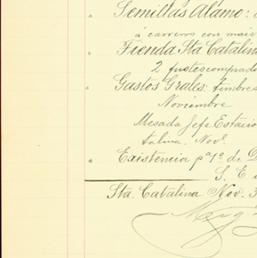 " Semillas Alamo:
á carrero con maiz
" Tienda Sta Catalina
2 fustes comprado
" Gastos Grales: timbres
Noviembre
Mesada Jefe Estacio
talina. Novl
" Existencia pa 1o de D
S. E
Sta. Catalina Nov. 3